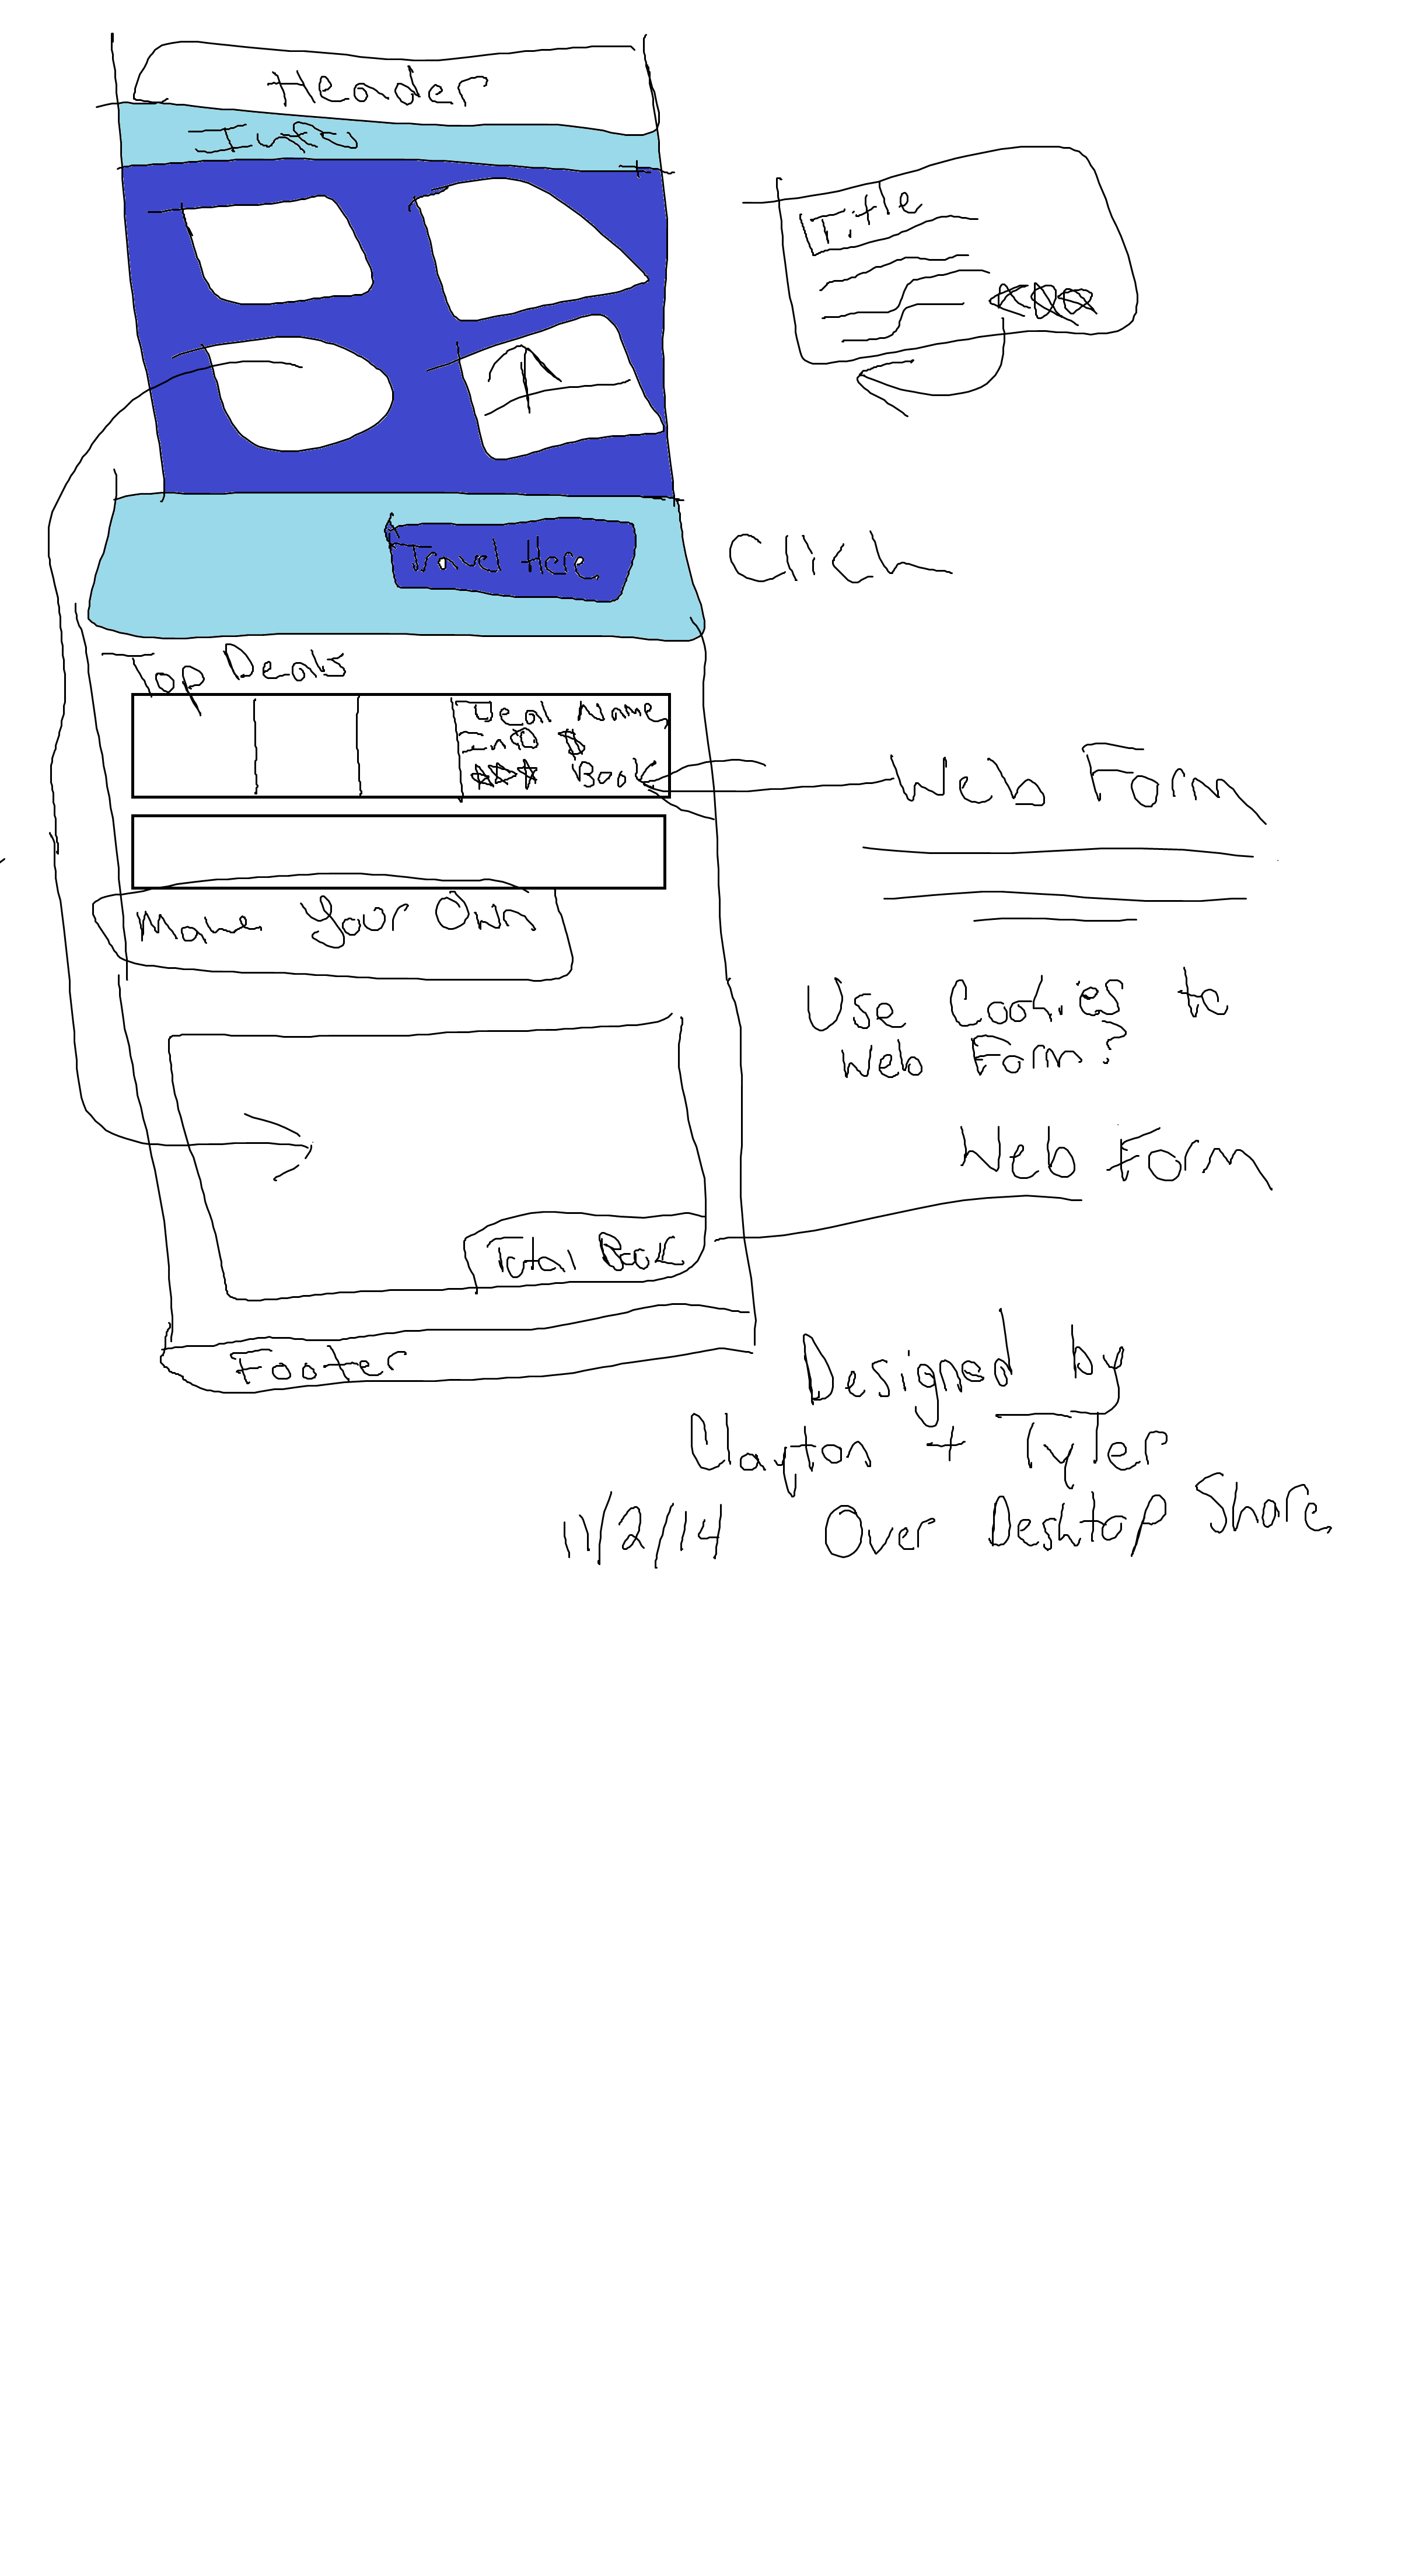 Header
Info
Title
Travel Here
Click
Top Deals
Deal Name
Info $
Book
Web Form
Make Your Own
Use Cookies to
Web Form?
Web Form
Total Book
Footer
Designed by
Clayton + Tyler
11/2/14 Over Desktop Share